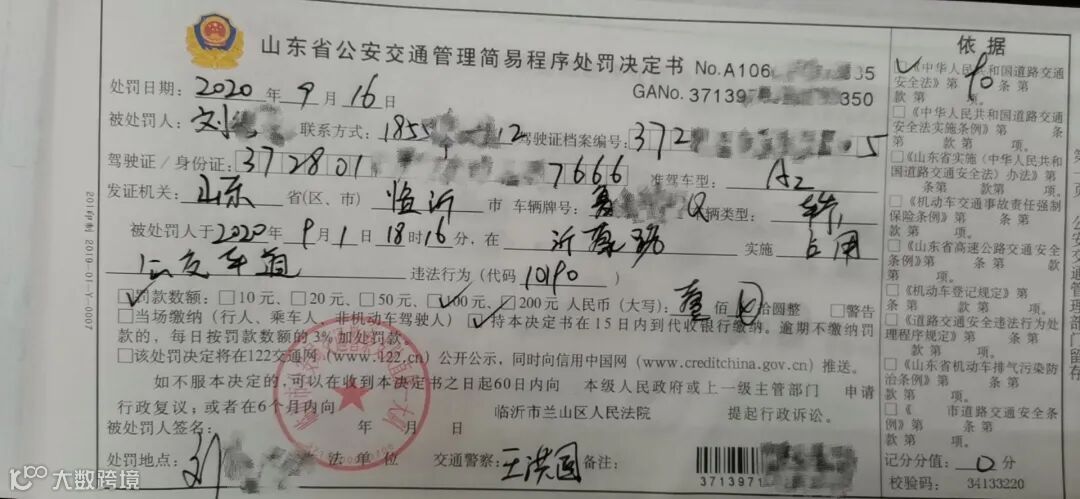 山东省公安交通管理简易程序处罚决定书 No.A106 35
GANo. 37139 350
处罚日期：2020年9月16日
被处罚人：刘 联系方式：1855 12 驾驶证档案编号：372 5
驾驶证/身份证：372801 7666 准驾车型：A2
发证机关：山东 省(区、市) 临沂 市 车辆牌号：鲁 Q 车辆类型：轿
被处罚人于2020年9月1日18时16分，在 沂蒙路 实施 占用
公交车道 违法行为（代码10190）
☑罚款数额：□10元、□20元、□50元、☑100元、□200元 人民币（大写）：壹佰 拾圆整 □警告
□当场缴纳（行人、乘车人、非机动车驾驶人）☑持本决定书在15日内到代收银行缴纳。逾期不缴纳罚
款的，每日按罚款数额的3%加处罚款。
□该处罚决定将在122交通网（www.122.cn）公开公示，同时向信用中国网（www.creditchina.gov.cn）推送。
如不服本决定的，可以在收到本决定书之日起60日内向 本级人民政府或上一级主管部门 申请
行政复议；或者在6个月内向 临沂市兰山区人民法院 提起行政诉讼。
被处罚人签名： 年 月 日
处罚地点：刘 法单位 交通警察：王洪国 备注：
371397
依据
☑《中华人民共和国道路交通
安全法》第90条 第
款 第 项。
□《中华人民共和国道路交通
安全法实施条例》第 条
第 款 第 项。
□《山东省实施〈中华人民共和
国道路交通安全法〉办法》第
条第 款第 项。
□《机动车交通事故责任强制
保险条例》第 条 第 款。
□《山东省高速公路交通安全
条例》第 条 第 款
第 项。
□《机动车登记规定》第
条 第 款 第 项。
□《道路交通安全违法行为处
理程序规定》第 条 第
款 第 项。
□《山东省机动车排气污染防
治条例》第 条 第 款
第 项。
□《 市道路交通安全条
例》第 条 第 款
第 项。
记分分值：0分
校验码： 34133220
2019-01-V-00007
大数跨境